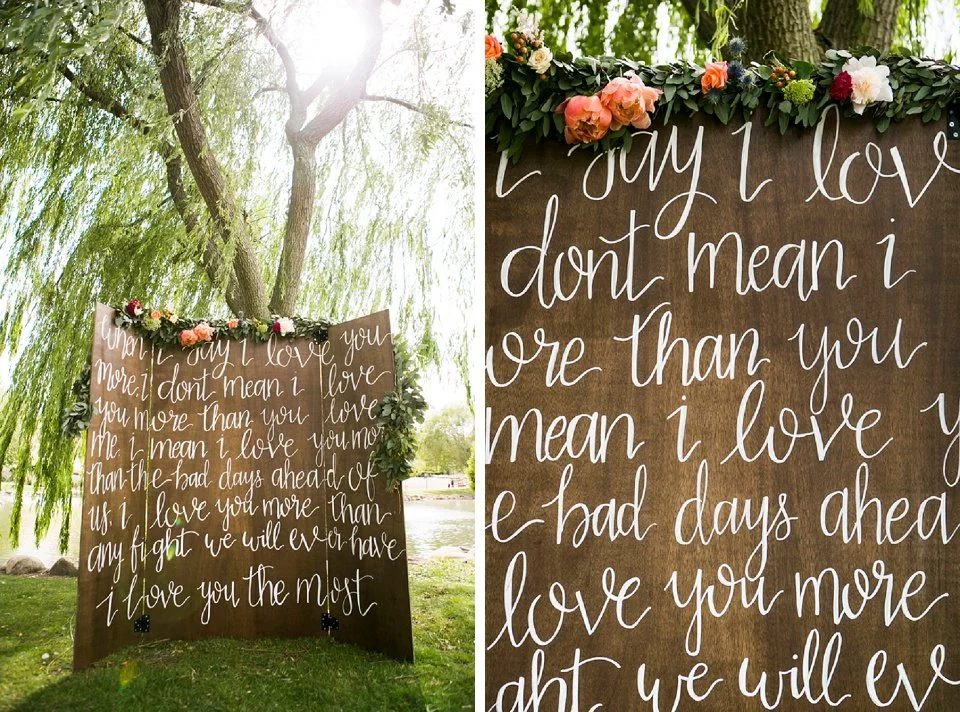 when i say i love you
more. i dont mean i love
you more than you love
me. i mean i love you more
than the bad days ahead of
us. i love you more than
any fight we will ever have
i love you the most
i say i love
dont mean i
ore than you
mean i love y
e bad days ahea
love you more
ght we will ev